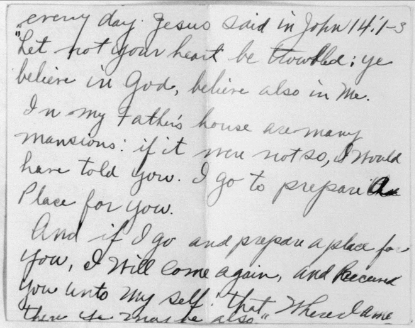 every day. Jesus said in John 14:1-3
"Let not your heart be troubled; ye
believe in God, believe also in Me.
In my Father's house are many
mansions: if it were not so, I would
have told you. I go to prepare a
Place for you.
And if I go and prepare a place for
you, I will come again, and
you unto my self: that "Where I am
there ye may be also."